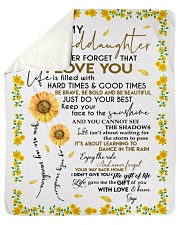 MY
ddaughter
ER FORGET THAT
I LOVE YOU
life is filled with
HARD TIMES & GOOD TIMES
BE BRAVE, BE BOLD AND BE BEAUTIFUL
JUST DO YOUR BEST
Keep your
face to the sunshine
AND YOU CANNOT SEE
THE SHADOWS
Life isn't about waiting for
the storm to pass
IT'S ABOUT LEARNING TO
DANCE IN THE RAIN
Enjoy the ride
And never forget
YOUR WAY BACK HOME
I DIDN'T GIVE YOU The gift of life
Life gave me the GIFT OF you
WITH LOVE & kisses,